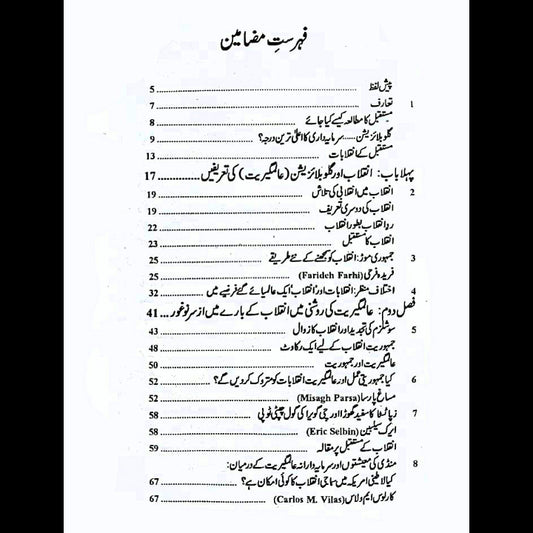 فہرستِ مضامین
پیش لفظ ........ 5
1 تعارف ........ 7
مستقبل کا مطالعہ کیسے کیا جائے ........ 8
گلوبلائزیشن ..... سرمایہ داری کا اعلیٰ ترین درجہ؟ ........ 9
مستقبل کے انقلابات ........ 13
پہلا باب: انقلاب اور گلوبلائزیشن (عالمگیریت) کی تعریفیں ........ 17
2 انقلاب میں انقلابی کی تلاش ........ 19
انقلاب کی دوسری تعریف ........ 19
ردِ انقلاب بطور انقلاب ........ 22
انقلاب کا مستقبل ........ 23
3 جمہوری موڑ: انقلاب کو سمجھنے کے نئے طریقے ........ 25
فریدہ فرحی (Farideh Farhi) ........ 25
4 اختلافِ منظر: انقلابات اور 'انقلاب' ایک عالمیائے گئے فرنیسے میں ........ 32
فصل دوم: عالمگیریت کی روشنی میں انقلاب کے بارے میں از سرِ نو غور ... 41
5 سوشلزم کی تجدید اور انقلاب کا زوال ........ 43
جمہوریت انقلاب کے لیے ایک رکاوٹ ........ 48
عالمگیریت اور جمہوریت ........ 50
6 کیا جمہوریتی عمل اور عالمگیریت انقلابات کو متروک کر دیں گے؟ ........ 52
مساغ پارسا (Misagh Parsa) ........ 52
7 زپاٹسٹا کا سفید گھوڑا اور چی گویرا کی گول چپٹی ٹوپی ........ 58
ایرک سیلبین (Eric Selbin) ........ 58
انقلاب کے مستقبل پر مقالہ ........ 59
8 منڈی کی معیشتوں اور سرمایہ دارانہ عالمگیریت کے درمیان:
کیا لاطینی امریکہ میں سماجی انقلاب کا کوئی امکان ہے؟ ........ 67
کارلوس ایم ولاس (Carlos M. Vilas) ........ 67